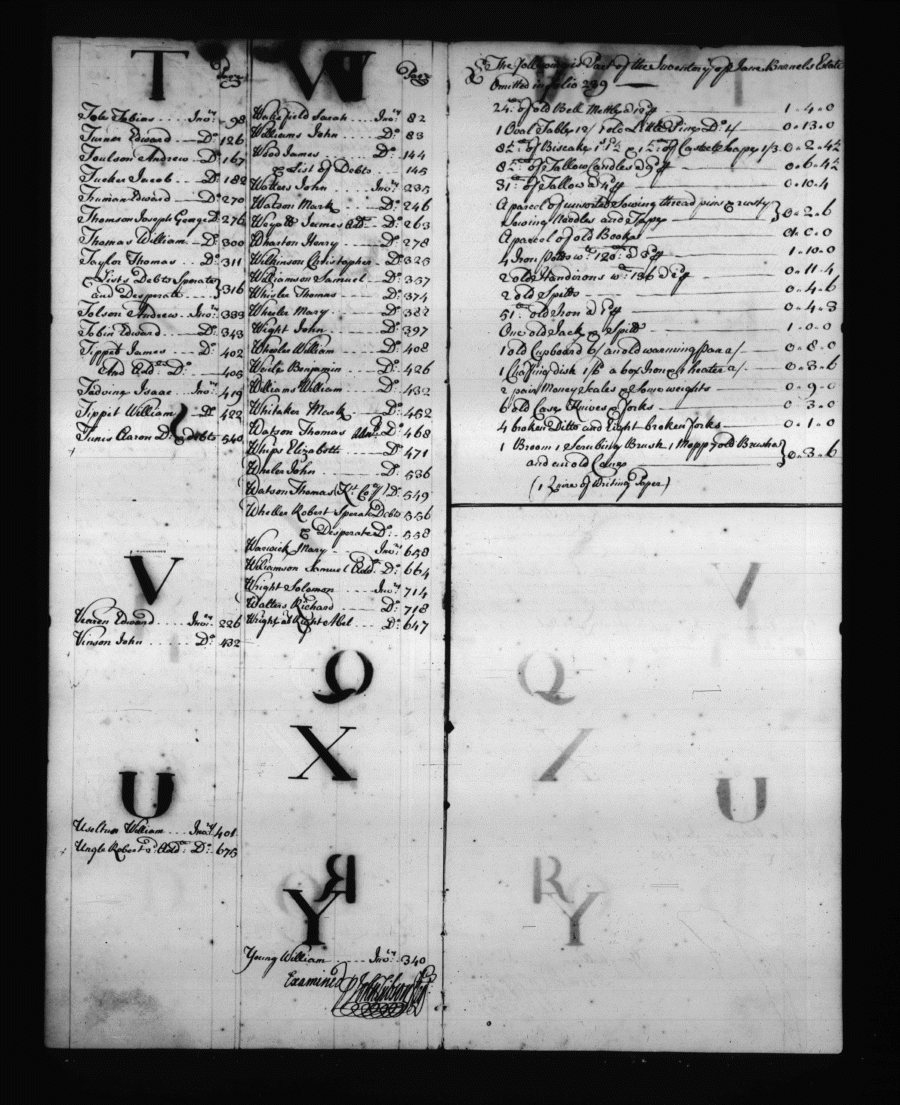 T
Page
Tole Tobias Inv.ry 98
Turner Edward D.o 126
Toulson Andrew D.o 167
Tucker Jacob D.o 182
Truman Edward D.o 270
Thomson Joseph George D.o 276
Thomas William D.o 300
Taylor Thomas D.o 311
Lists Debts Sperate
and Desperate 316
Tolson Andrew Inv.ry 333
Tobin Edward D.o 343
Tippet James D.o 402
And Add.l D.o 405
Isaac Inv.ry 419
Tippit William D.o 422
Aaron D.o & debts 540
V
Edward Inv.ry 226
Vinson John D.o 432
U
William Inv.ry 401
Robert Add.l D.o 675
W
Page
Wakefield Sarah Inv.ry 82
Williams John D.o 83
Wood James D.o 144
& List of Debts 145
Watters John Inv.ry 235
Watson Mark D.o 246
Wyatt James Add.l D.o 263
Wharton Henry D.o 278
Wilkinson Christopher D.o 323
Williamson Samuel D.o 357
Thomas D.o 374
Wheeler Mary D.o 382
Wight John D.o 397
Wheeler William D.o 408
Benjamin D.o 426
Williams William D.o 432
Whitaker Mark D.o 452
Watson Thomas D.o 468
Whips Elizabeth D.o 471
Wheler John D.o 536
Watson Thomas (Kt Co.ty) D.o 549
Wheller Robert Sperate Debts 556
& Desperate D.o 558
Warwick Mary Inv.ry 658
Williamson Samuel Add.l D.o 664
Wright Solomon Inv.ry 714
Walters Richard D.o 718
Wright als Right Abel D.o 647
Q
X
R
Y
Young William Inv.ry 340
Examined
The following is Part of the Inventory of Jane Burnels Estate
Omitted in folio 239
24 of old Bell Mettle 1 . 4 . 0
1 Oval Table 12/ 1 old Little Pine D.o 1/ 0 . 13 . 0
of Castele Soape 1/3 0 . 2 . 4½
of Tallow Candles 0 . 6 . 4½
31 of Tallow 0 . 10 . 4
A parcel of unsorted Sowing thread pins & rusty
Sowing Needles and Tape 0 . 2 . 6
A parcel of old Books
4 Iron Potts 1 . 10 . 0
2 old Handirons 0 . 11 . 4
2 old Spitts 0 . 4 . 6
51 old Iron 0 . 4 . 3
One old Jack & Spitt 1 . 0 . 0
1 old Cupboard 6/ an old warming pan 2/ 0 . 8 . 0
1 Chaffing dish 1/6 a box Iron & heater 2/ 0 . 3 . 6
2 pair Money Scales & some weights 0 . 9 . 0
6 old Case Knives & forks 0 . 3 . 0
4 broken Ditto and Eight broken forks 0 . 1 . 0
1 Broom 1 Scrubing Brush 1 Mopp 3 old Brushes
and an old 0 . 3 . 6
(1 Quire of Writing Paper)